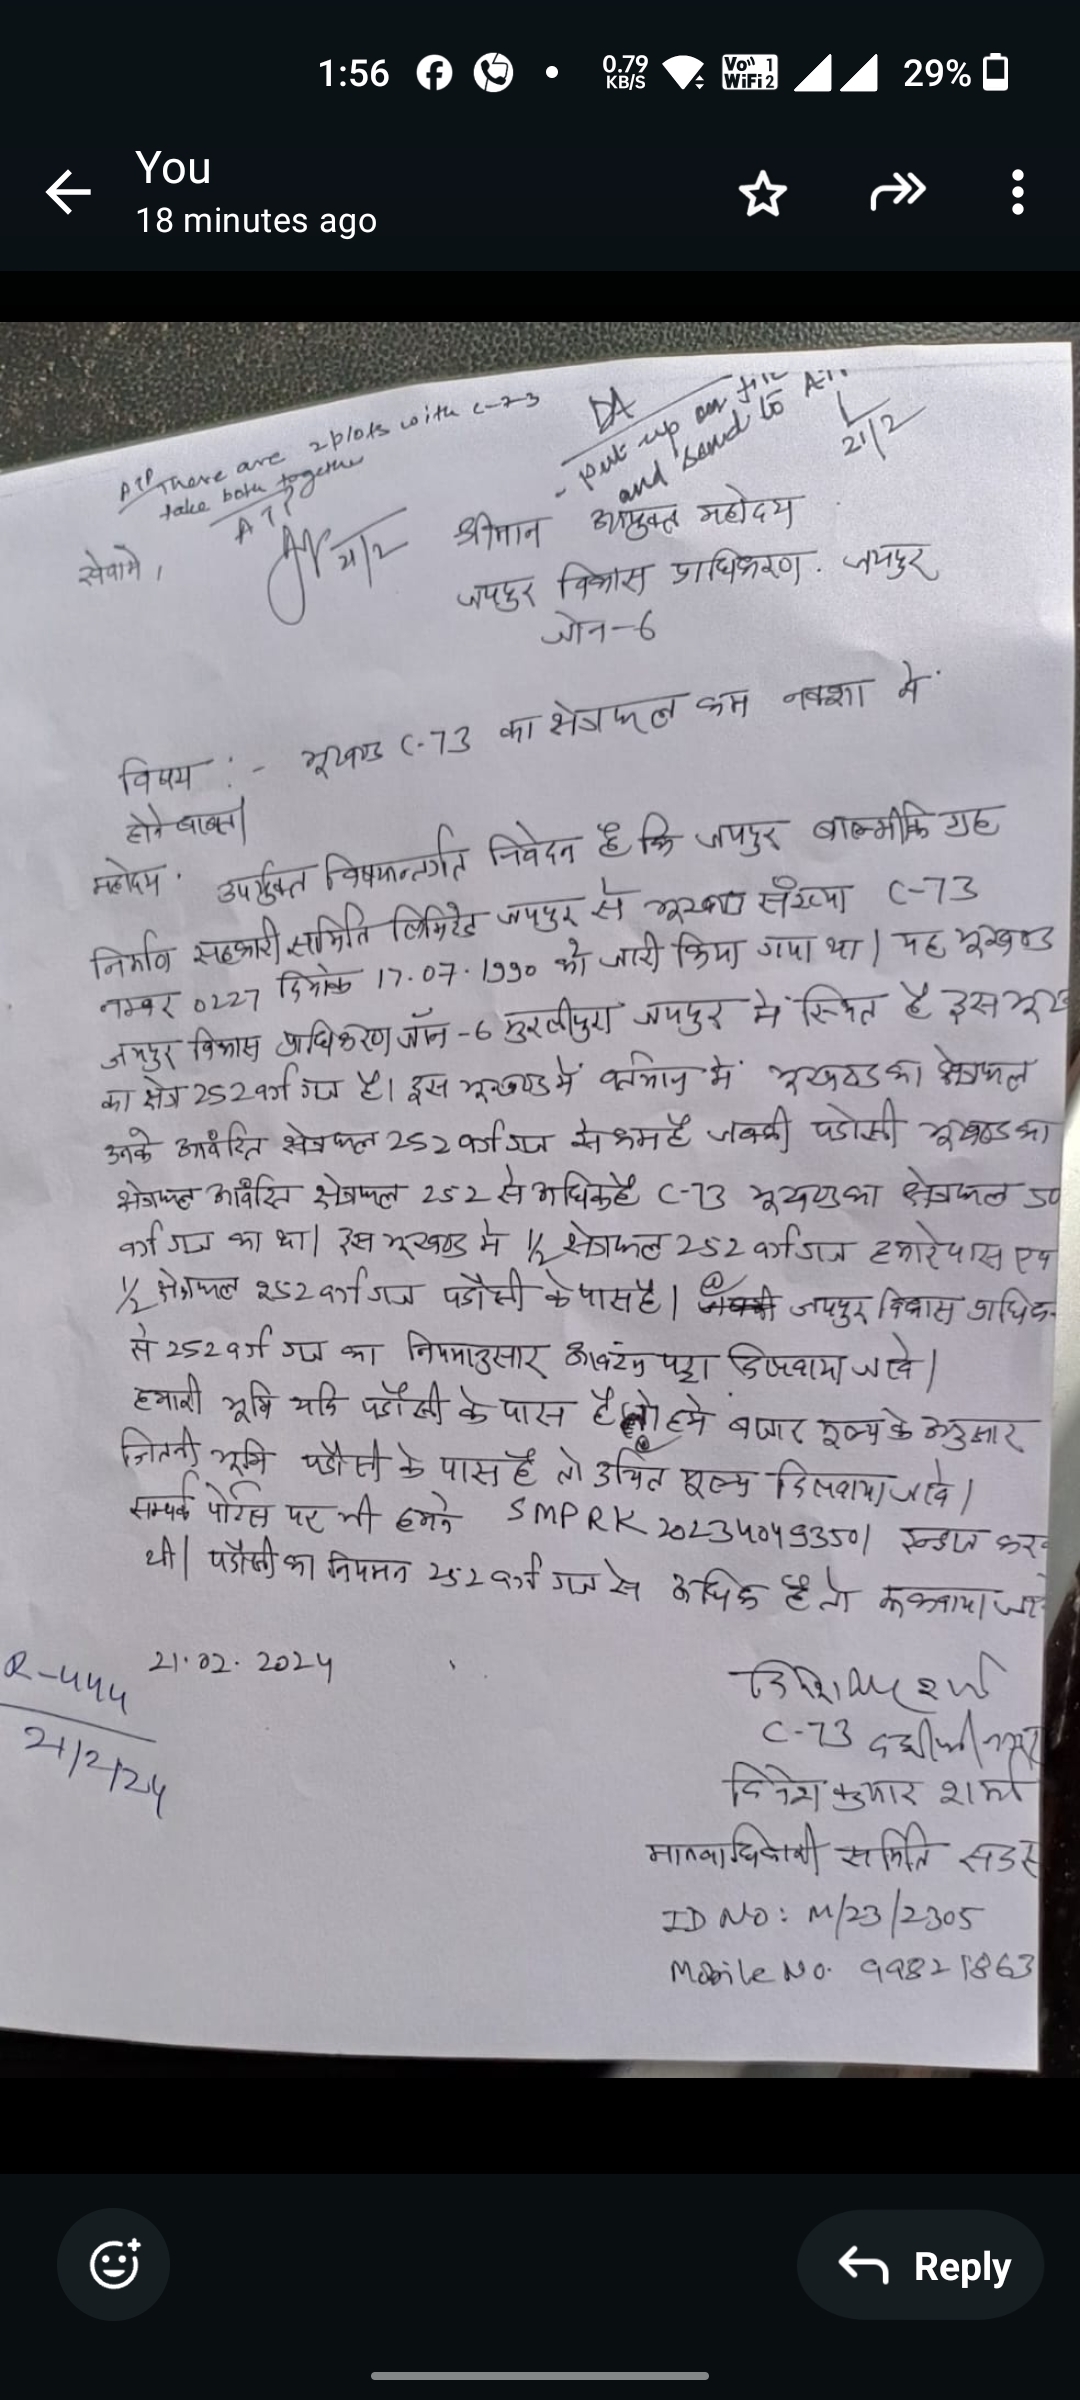 1:56
0.79 KB/S
Vo)) 1 WiFi 2
29%
You
18 minutes ago
ATP There are 2 plots with C-73
take both together
21/2
DA
- put up on file
and send to
21/2
सेवामे,
श्रीमान उपायुक्त महोदय
जयपुर विकास प्राधिकरण. जयपुर
जोन-6
विषय :- भूखण्ड C-73 का क्षेत्रफल कम नक्शा में
होने बाबत।
महोदय. उपर्युक्त विषयान्तर्गत निवेदन है कि जयपुर बाल्मीकि ग्रह
निर्माण सहकारी समिति लिमिटेड जयपुर से भूखण्ड संख्या C-73
नम्बर 0227 दिनांक 17.07.1990 को जारी किया गया था। यह भूखण्ड
जयपुर विकास प्राधिकरण जॉन-6 मुरलीपुरा जयपुर में स्थित है इस
का क्षेत्र 252 वर्ग गज है। इस भूखण्ड में वर्तमान में भूखण्ड का क्षेत्रफल
उनके आवंटित क्षेत्रफल 252 वर्ग गज से कम है जबकी पडोसी भूखण्ड का
क्षेत्रफल आवंटित क्षेत्रफल 252 से अधिक है C-73 भूखण्ड का क्षेत्रफल
वर्ग गज का था। इस भूखण्ड मे 1/2 क्षेत्रफल 252 वर्ग गज हमारे पास एव
1/2 क्षेत्रफल 252 वर्ग गज पडौसी के पास है। जयपुर विकास
से 252 वर्ग गज का नियमानुसार आवंटन पट्टा दिलवाया जावे।
हमारी भूमि यदि पडौसी के पास है तो हमे बाजार मूल्य के अनुसार
जितनी भूमि पडौसी के पास है तो उचित मूल्य दिलवाया जावे।
सम्पर्क पोर्टल पर भी हमने SMPRK 202340493501 इन्द्राज
थी। पडौसी का नियमन 252 वर्ग गज से अधिक है तो
21.02.2024
R-444
21/2/24
C-73
दिनेश कुमार शर्मा
समिति
ID NO: M/23/2305
Mobile No. 99821863
Reply